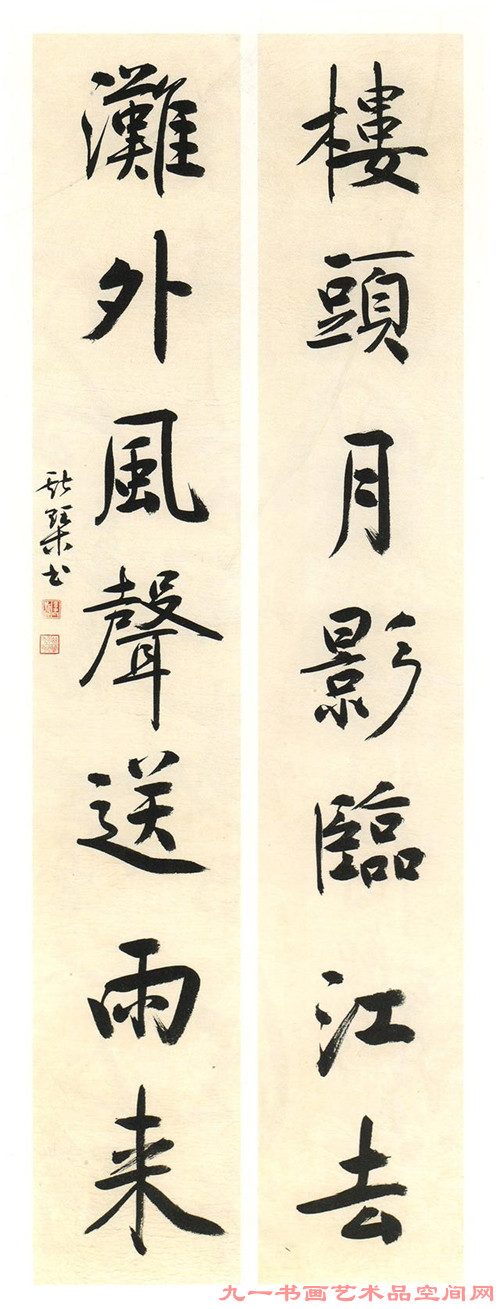 樓頭月影臨江去
灘外風聲送雨来
九一书画艺术品空间网